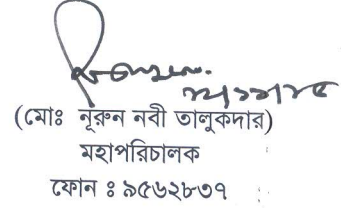 (মোঃ নূরুন নবী তালুকদার)
মহাপরিচালক
ফোন ঃ ৯৫৬২৮৩৭